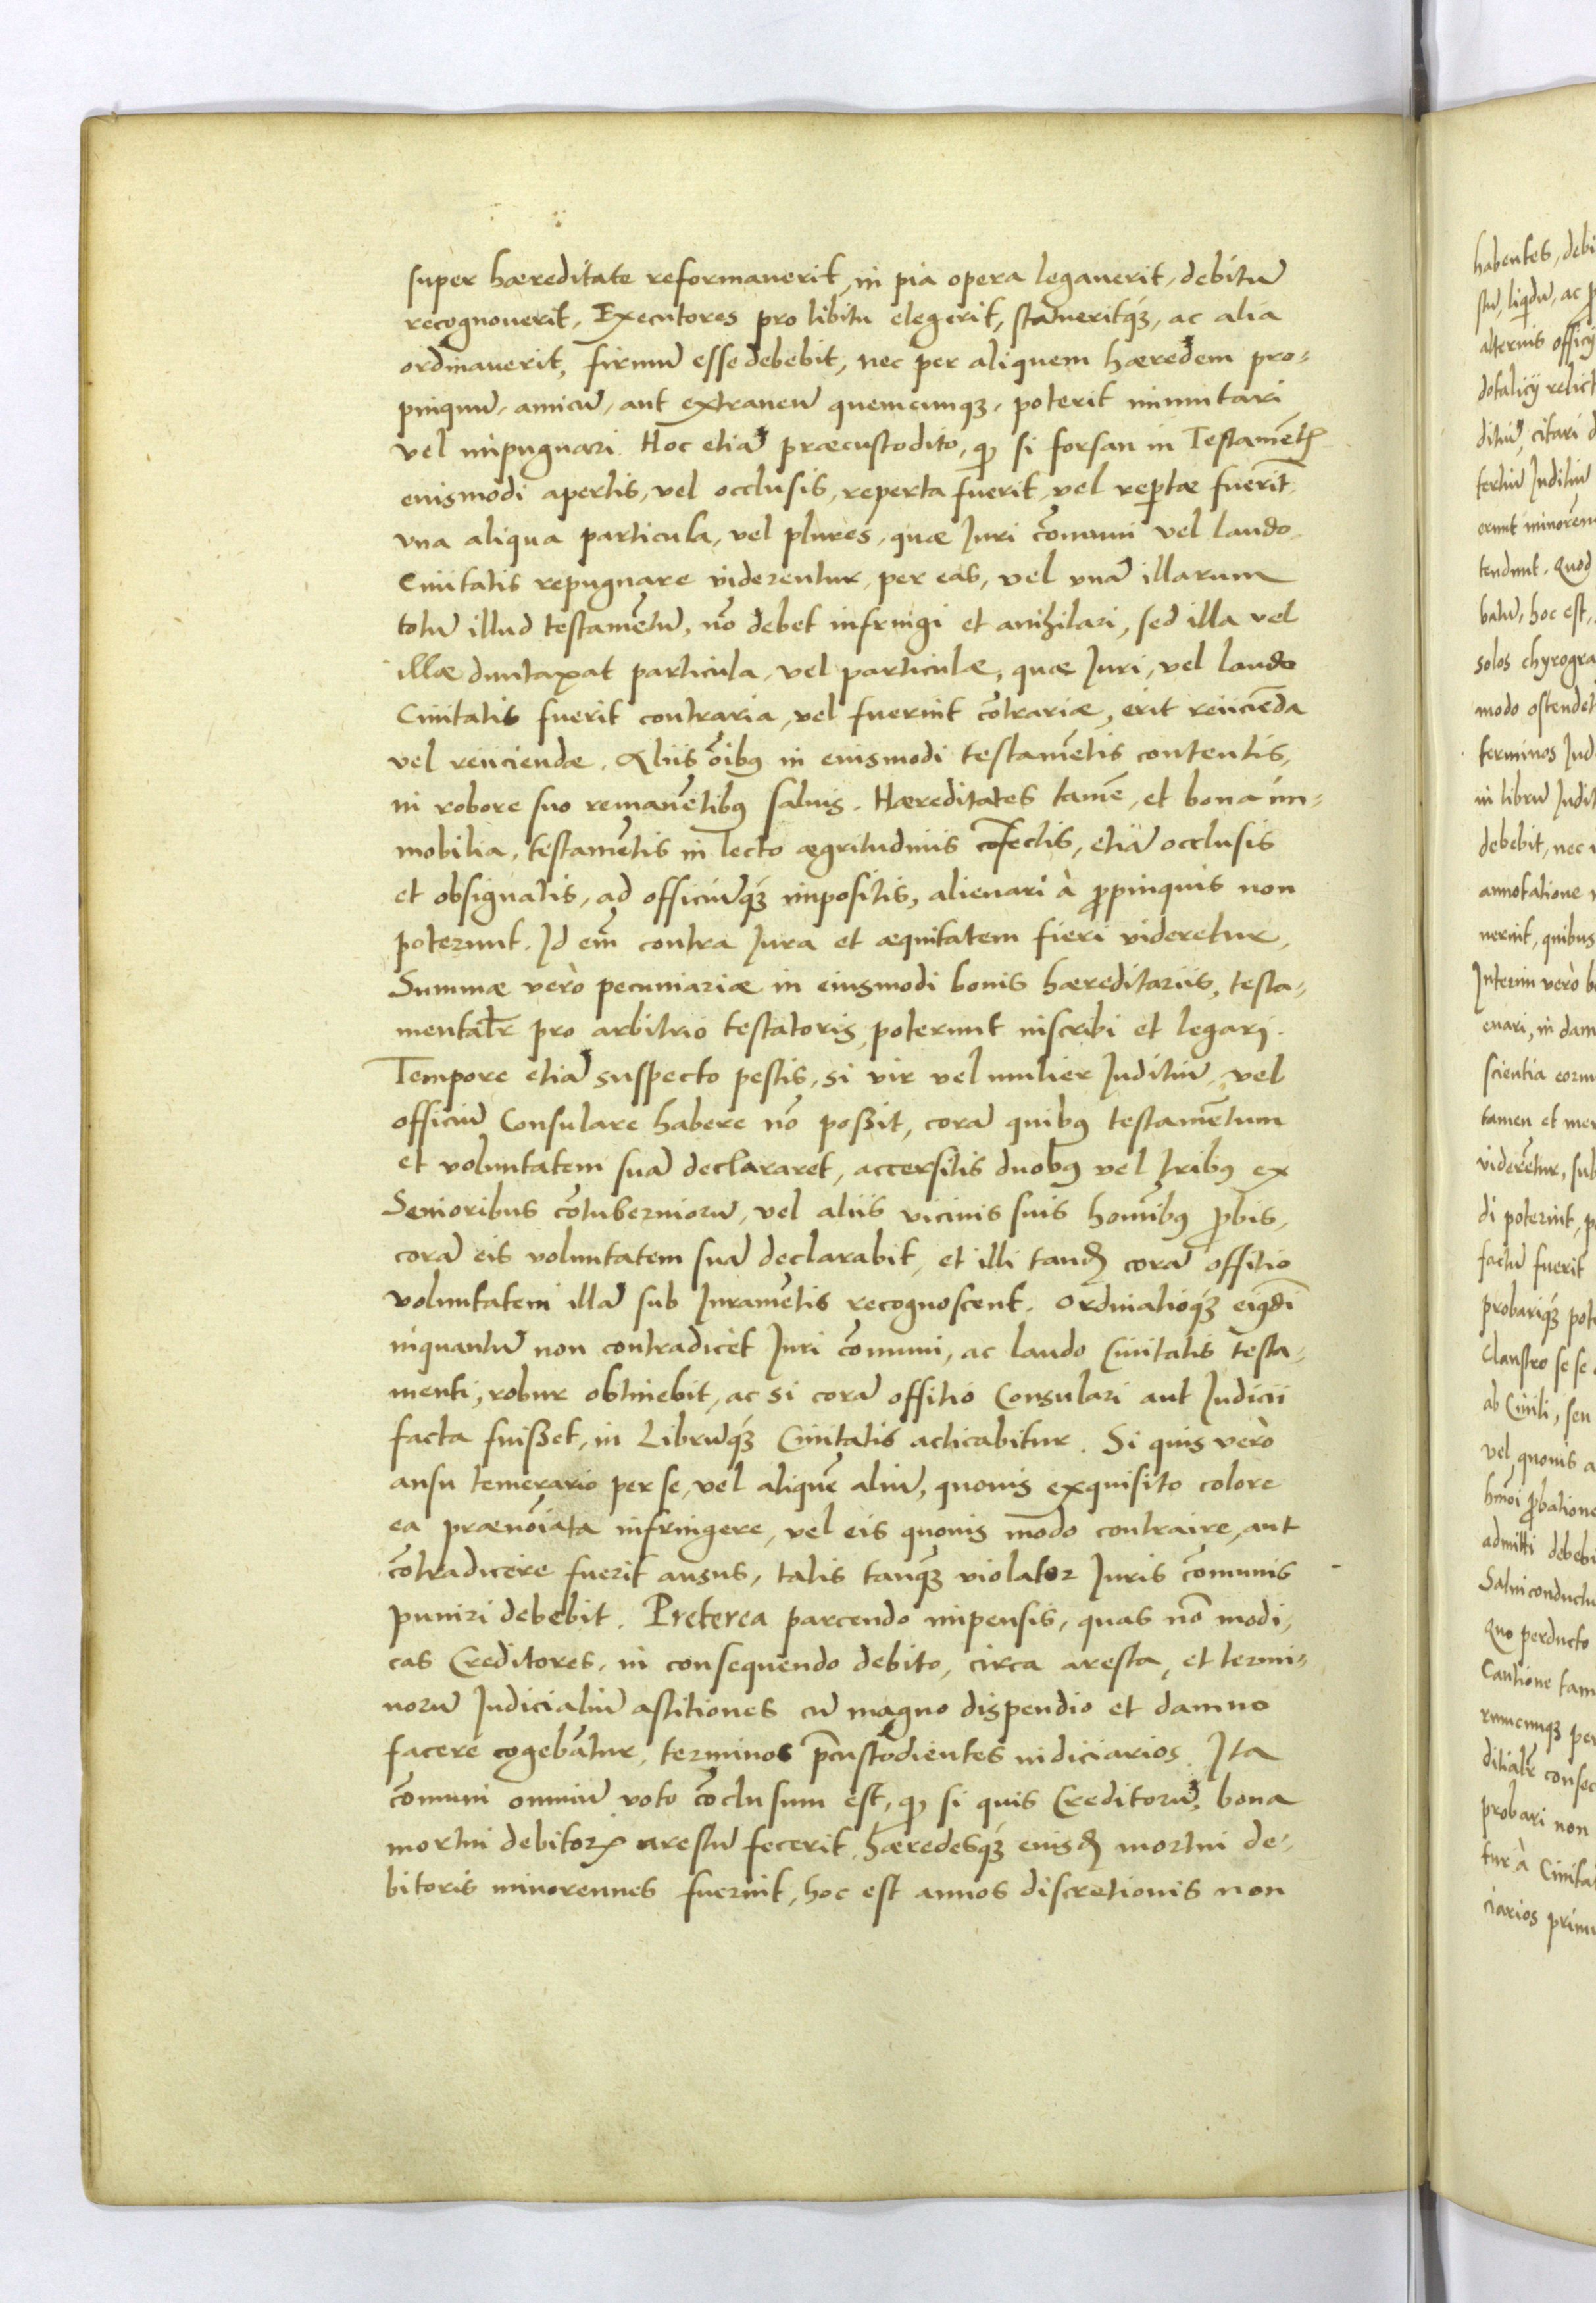 super hæreditate reformauerit, in pia opera legauerit, debitū
recognouerit, Executores pro libitu elegerit, statueritqȝ, ac alia
ordinauerit, firmū esse debebit, nec per aliquem hæredem pro-
pinquū, amicū, aut extraneū quemcunqȝ, poterit immutari
vel impugnari. Hoc etiā præcustodito, qȝ si forsan in Testamētꝭ
euismodi apertis, vel occlusis, reperta fuerit, vel reꝑtæ fuerīt
vna aliqua particula, vel plures, quæ Iuri cōmuni vel laudo
Ciuitatis repugnare viderentur, per eas, vel vnā illarum
totū illud testamētū, nō debet infringi et anihilari, sed illa vel
illæ duntaxat particula, vel particulæ, quæ Iuri, vel laudo
Ciuitatis fuerit contraria, vel fuerint cōtrariæ, erit reiiciēda
vel reiiciendæ. Aliis oībꝯ in euismodi testamētis contentis,
in robore suo remanētibꝯ saluis. Hæreditates tamē, et bona im-
mobilia, testamētis in lecto ægritudinis cōfectis, etiā occlusis
et obsignatis, ad officiūqȝ impositis, alienari à ꝓpinquis non
poterunt. Id em̄ contra Iura et æquitatem fieri videretur.
Summæ verò pecuniariæ in eiusmodi bonis hæreditariis, testa-
mentalr̄ pro arbitrio testatoris, poterunt inscribi et legari.
Tempore etiā suspecto pestis, si vir vel mulier Iuditiū, vel
officiū Consulare habere nō poßit, corā quibꝯ testamētum
et voluntatem suā declararet, accersitis duobꝯ vel tribꝯ ex
Senioribus cōtuberniorū, vel aliis vicinis suis homībꝯ ꝓbis,
corā eis voluntatem suā declarabit, et illi tandē corā offitio
voluntatem illā sub Iuramētis recognoscent. Ordinatioqȝ eiꝯdī
inquantū non contradicet Iuri cōmuni, ac laudo Ciuitatis testa-
menti, robur obtinebit, ac si corā offitio Consulari aut Iudicii
facta fuißet, in Librūqȝ Ciuitatis acticabitur. Si quis verò
ausu temerario per se, vel aliquē aliū, quouis exquisito colore
ea prænoīata infringere, vel eis quouis modo contraire, aut
cōtradicere fuerit ausus, talis tanqȝ violator Iuris cōmunis
puniri debebit. Preterea parcendo impensis, quas nō modi-
cas Creditores, in consequendo debito, circa aresta, et termi-
norū Iudicialiū astitiones cū magno dispendio et damno
facere cogebātur, terminos p̄custodientes iudiciarios. Ita
cōmuni omniū voto cōclusum est, qȝ si quis Creditorū, bona
mortui debitorꝭ arestū fecerit, hæredesqȝ eiusdē mortui de-
bitoris minorennes fuerint, hoc est annos discretionis non
habentes, debi
stū, liqidū, ac p
alternis officij
dotalicij relict
ditiū, citari d
tertiū Iuditiū
erunt minorēn
tendunt. Quod
batū, hoc est,
solos chyrogra
modo ostendet
terminos Iud
in librū Iudit
debebit, nec
annotatione
uerint, quibus
Interim verò b
enari, in dam
scientia eorum
tamen et mer
viderētur, sub
di poterint, p
factū fuerit
probariqȝ pote
Claustro se se
ab Ciuili, seu
vel, quouis a
hmōi ꝓbatione
admitti debebi
Saluiconductu
Quo perducto
Cautione tam
rumcunqȝ per
ditialr̄ consec
probari non
tur à Ciuita
ciarios primu